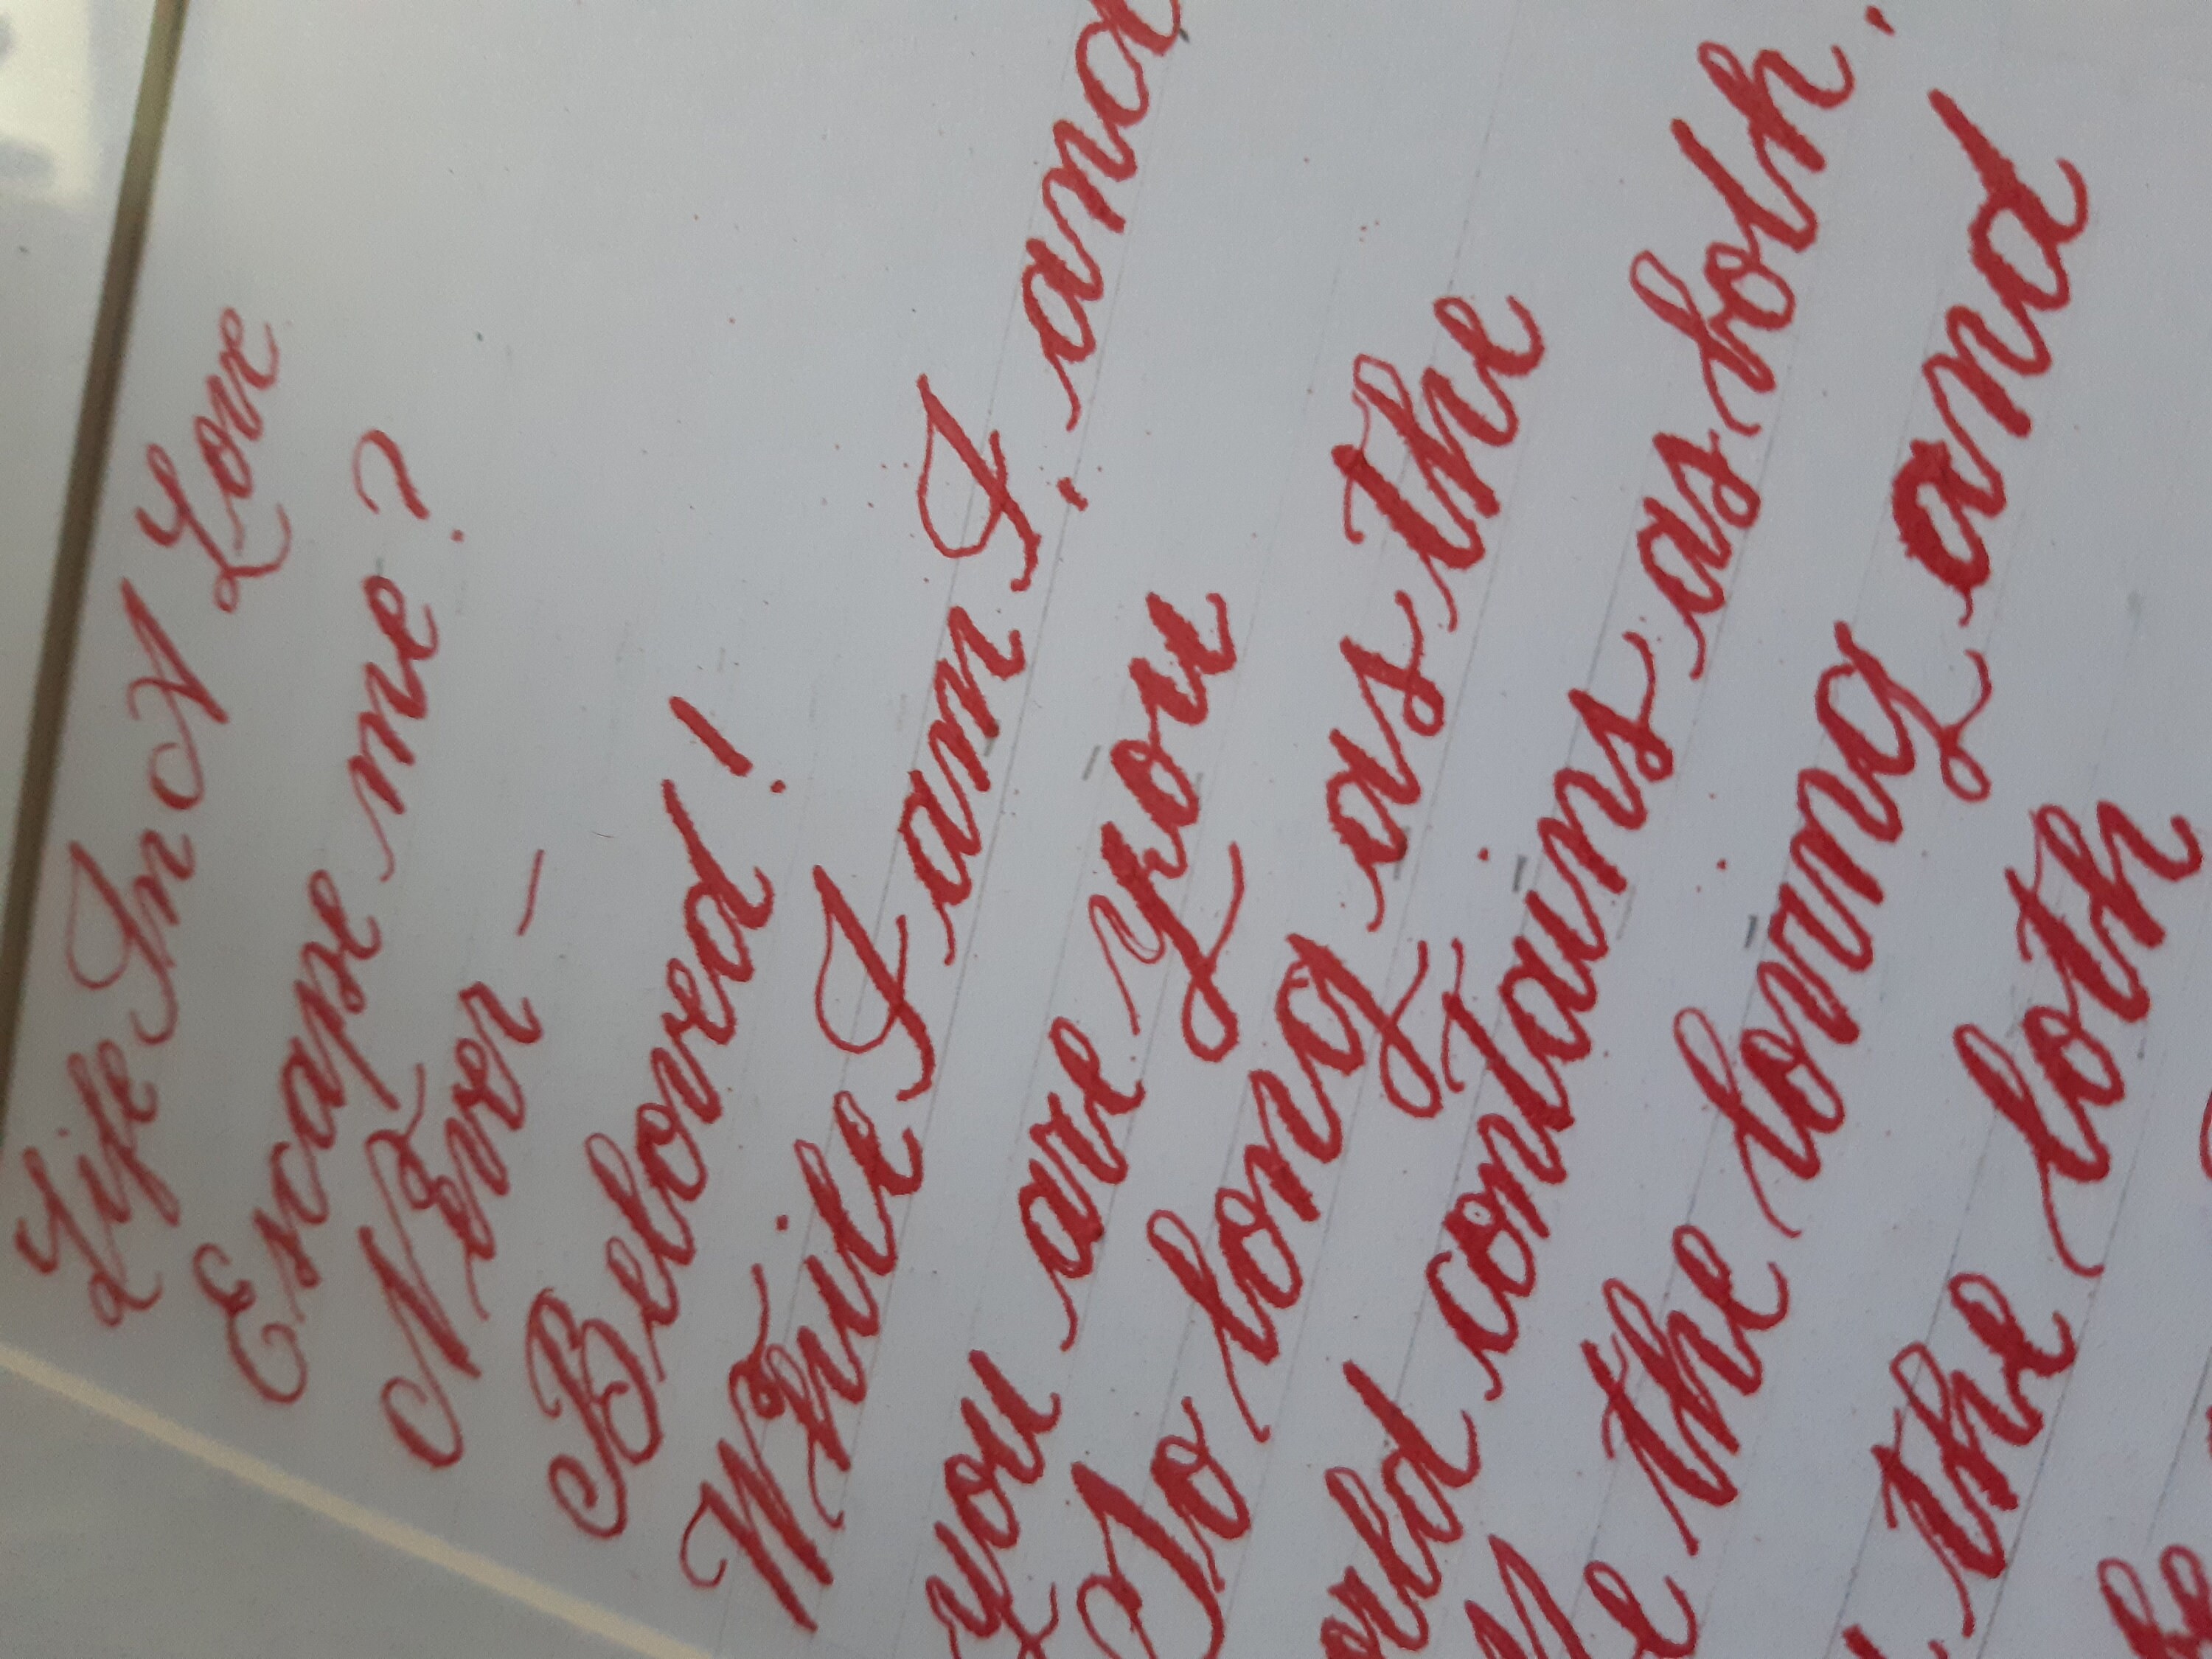 Life In A Love
Escape me?
Never –
Beloved!
While I am I. and
you are you
So long as the
world contains us both.
Me the loving and
the loth